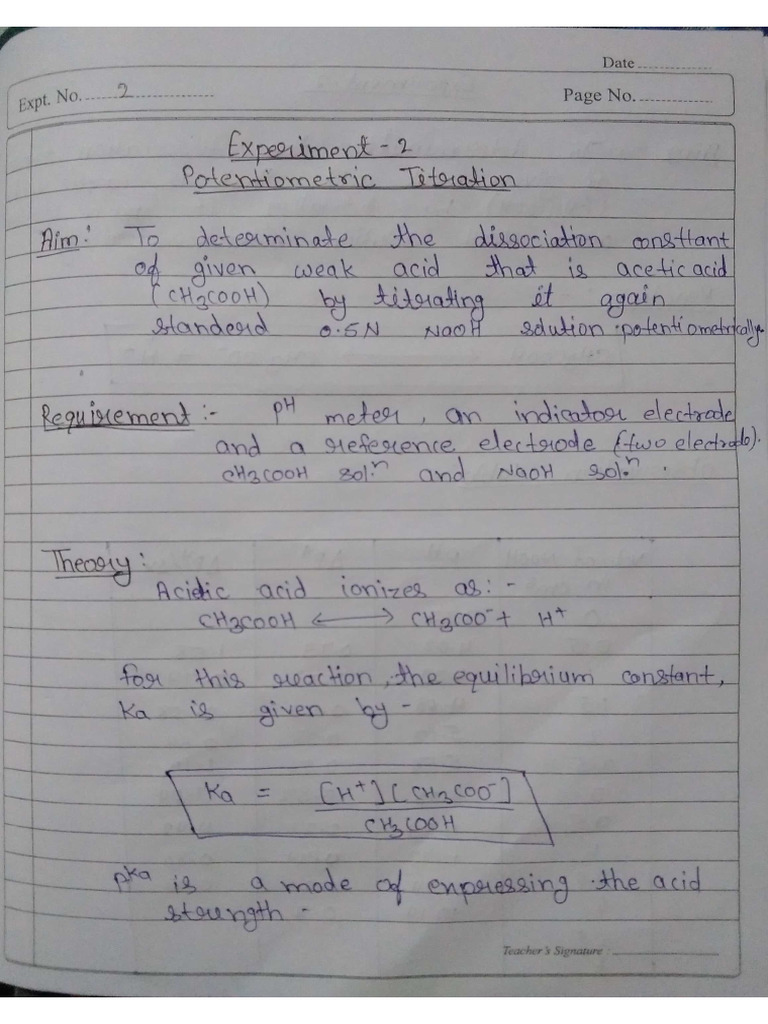 Date
Expt. No. 2
Page No.
Experiment - 2
Potentiometric Titration
Aim: To determinate the dissociation consttant
of given weak acid that is acetic acid
(CH3COOH) by titrating it again
standerd 0.5N NaOH solution potentiometrically.
Requirement :- pH meter, an indicator electrode
and a reference electrode (two electrode).
CH3COOH sol.n and NaOH sol.n.
Theory:
Acidic acid ionizes as: -
CH3COOH ⟷ CH3COO⁻ + H⁺
for this reaction, the equilibrium constant,
Ka is given by -
Ka = [H⁺] [CH3COO⁻]
CH3COOH
pKa is a mode of enpressing the acid
strength -
Teacher's Signature :